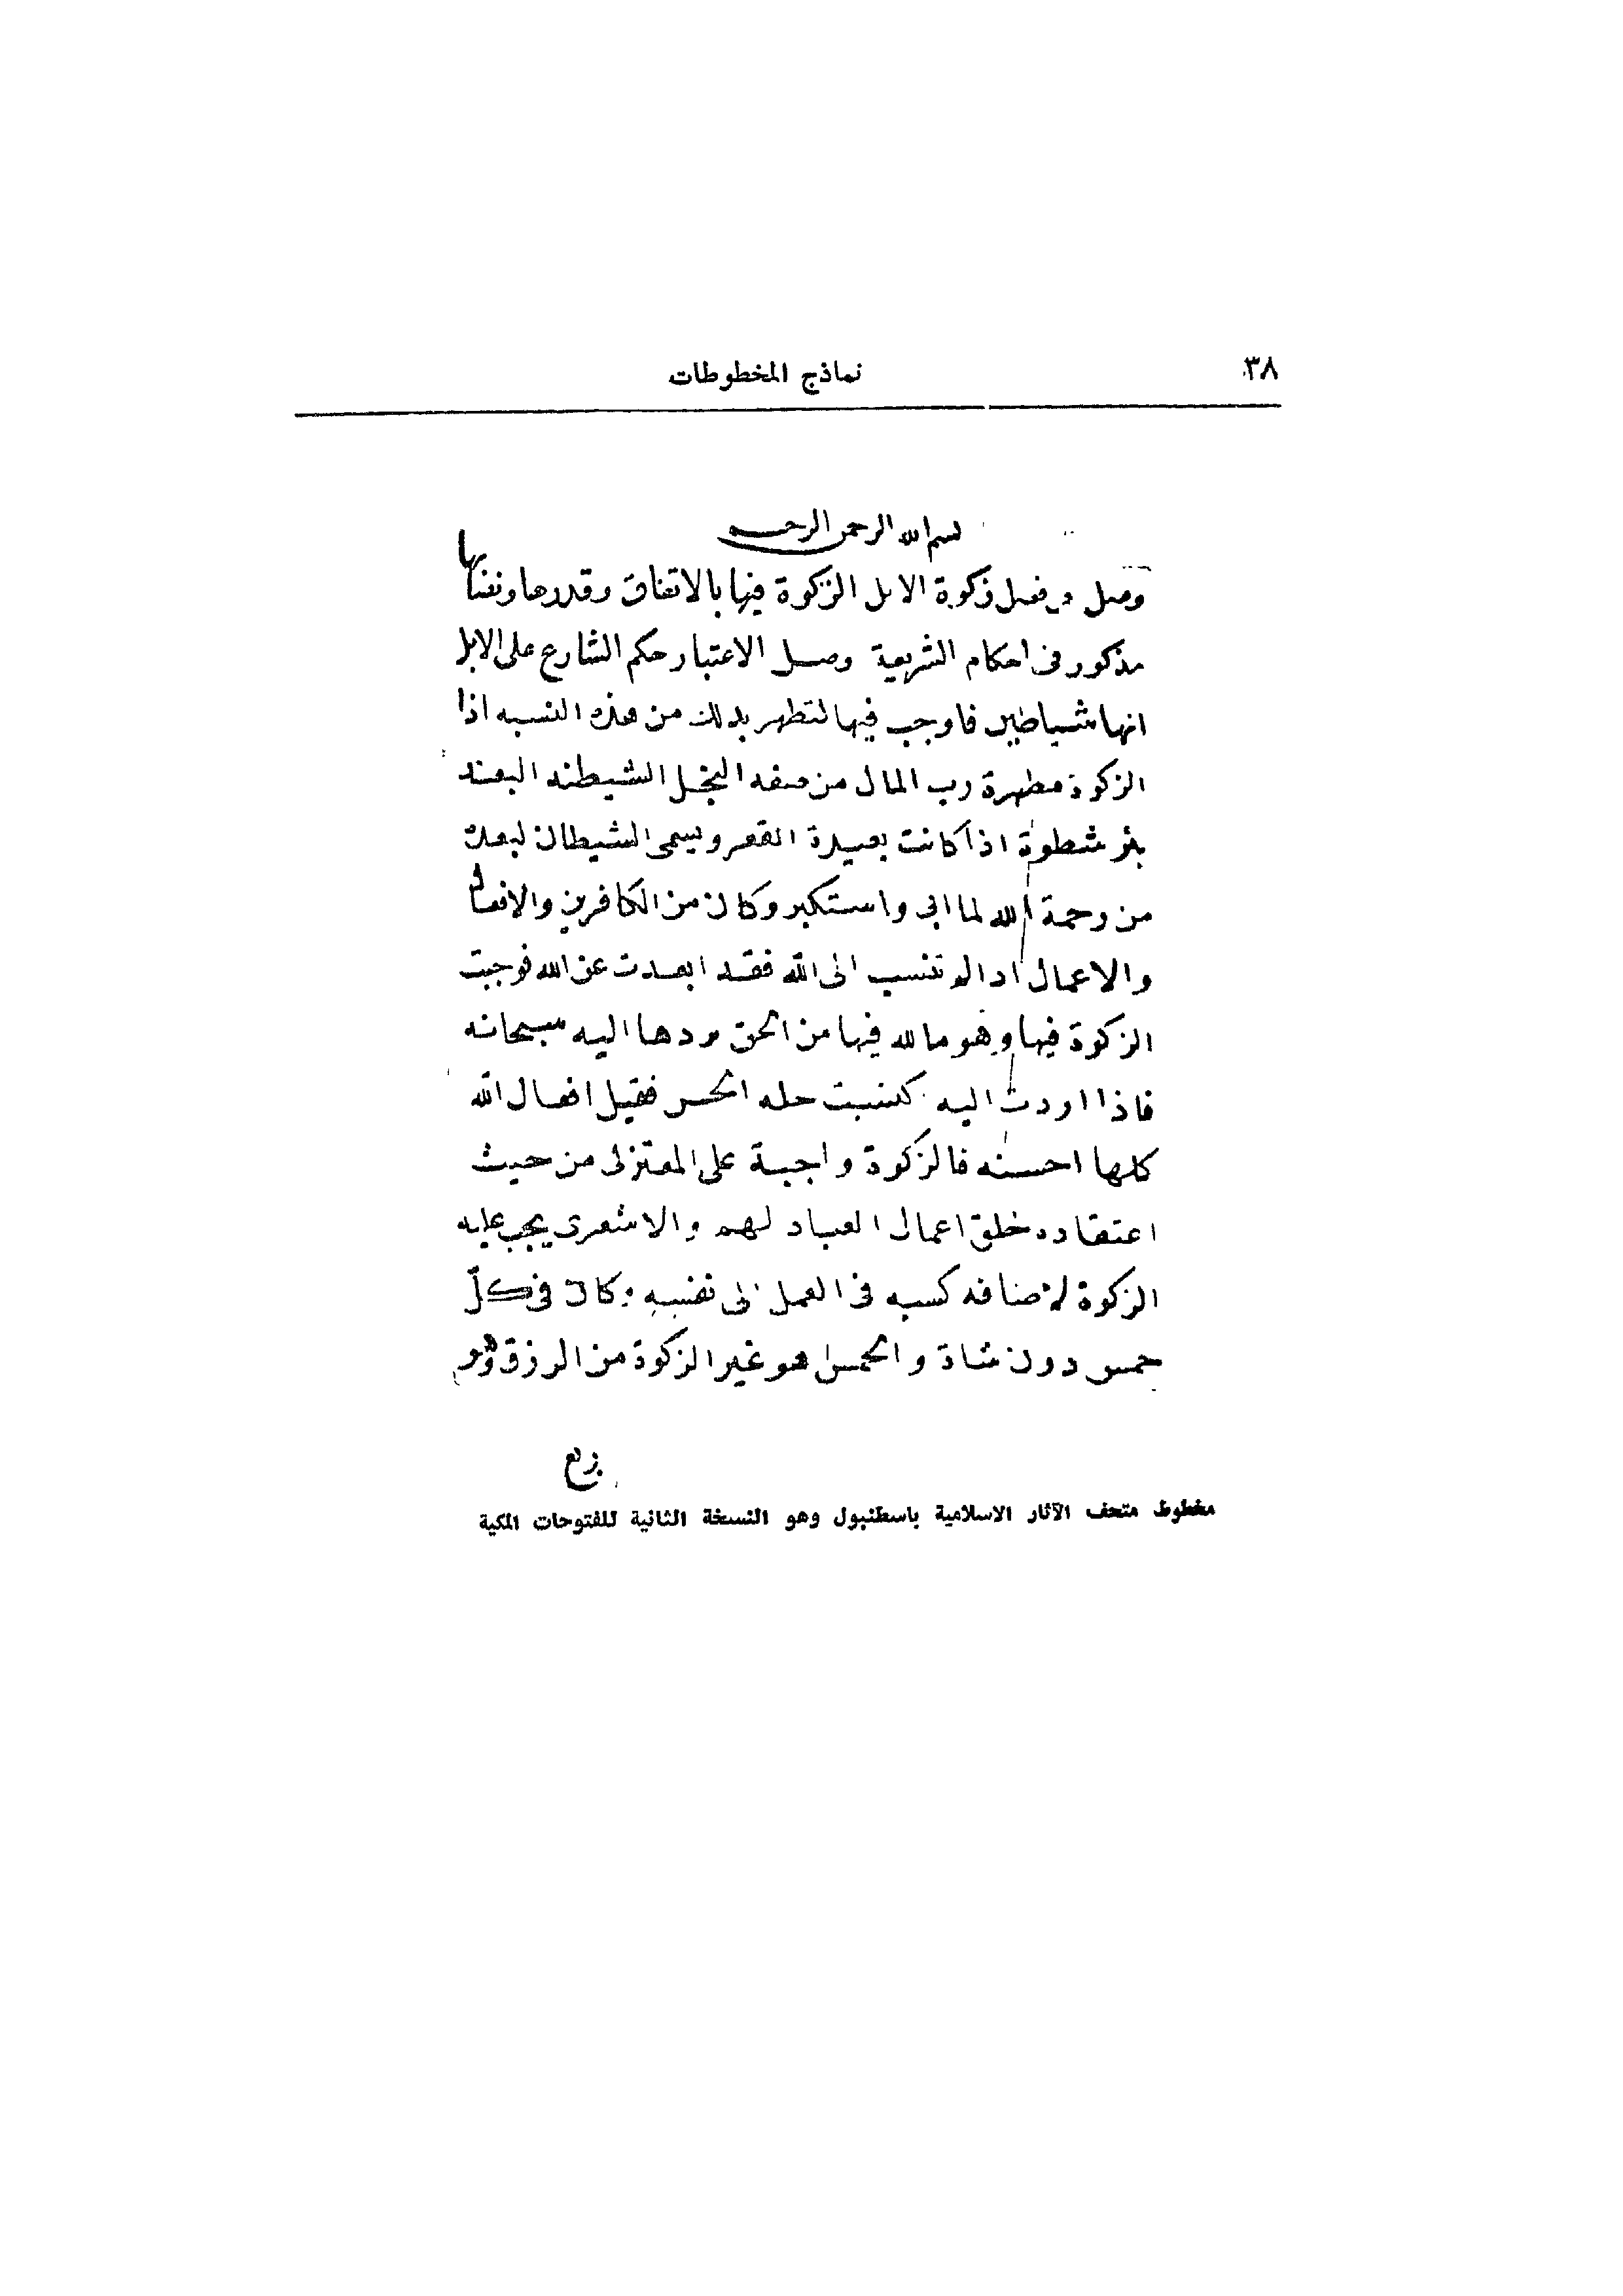 ٣٨
نماذج المخطوطات
بسم الله الرحمن الرحيم
وصل في فصل زكوة الابل الزكوة فيها بالاتفاق وقدرها ونصابها
مذكور في احكام الشريعة وصل الاعتبار حكم الشارع على الابل
انها شياطين فاوجب فيها لتطهر بذلك من هذه النسبه اذا
الزكوة مطهرة رب المال من صفه البخل الشيطنه البعد
بئر شطونة اذا كانت بعيدة القعر ويسمى الشيطان لبعده
من رحمة الله لما ابى واستكبر وكان من الكافرين والافعال
والاعمال اذا لم تنسب الى الله فقد ابعدت عن الله فوجبت
الزكوة فيها وهو ما لله فيها من الحق بردها اليه سبحانه
فاذا اردت اليه كسبت حله الحسن فقيل افعال الله
كلها احسنه فالزكوة واجبة على المعتزلي من حيث
اعتقاده خلق اعمال العباد لهم والاشعري يجب عليه
الزكوة لاضافه كسبه في العمل الى نفسه وكان في كلّ
خمس دون شاة والخمس هو غير الزكوة من الورق وهو
ربع
مخطوط متحف الآثار الاسلامية باسطنبول وهو النسخة الثانية للفتوحات المكية